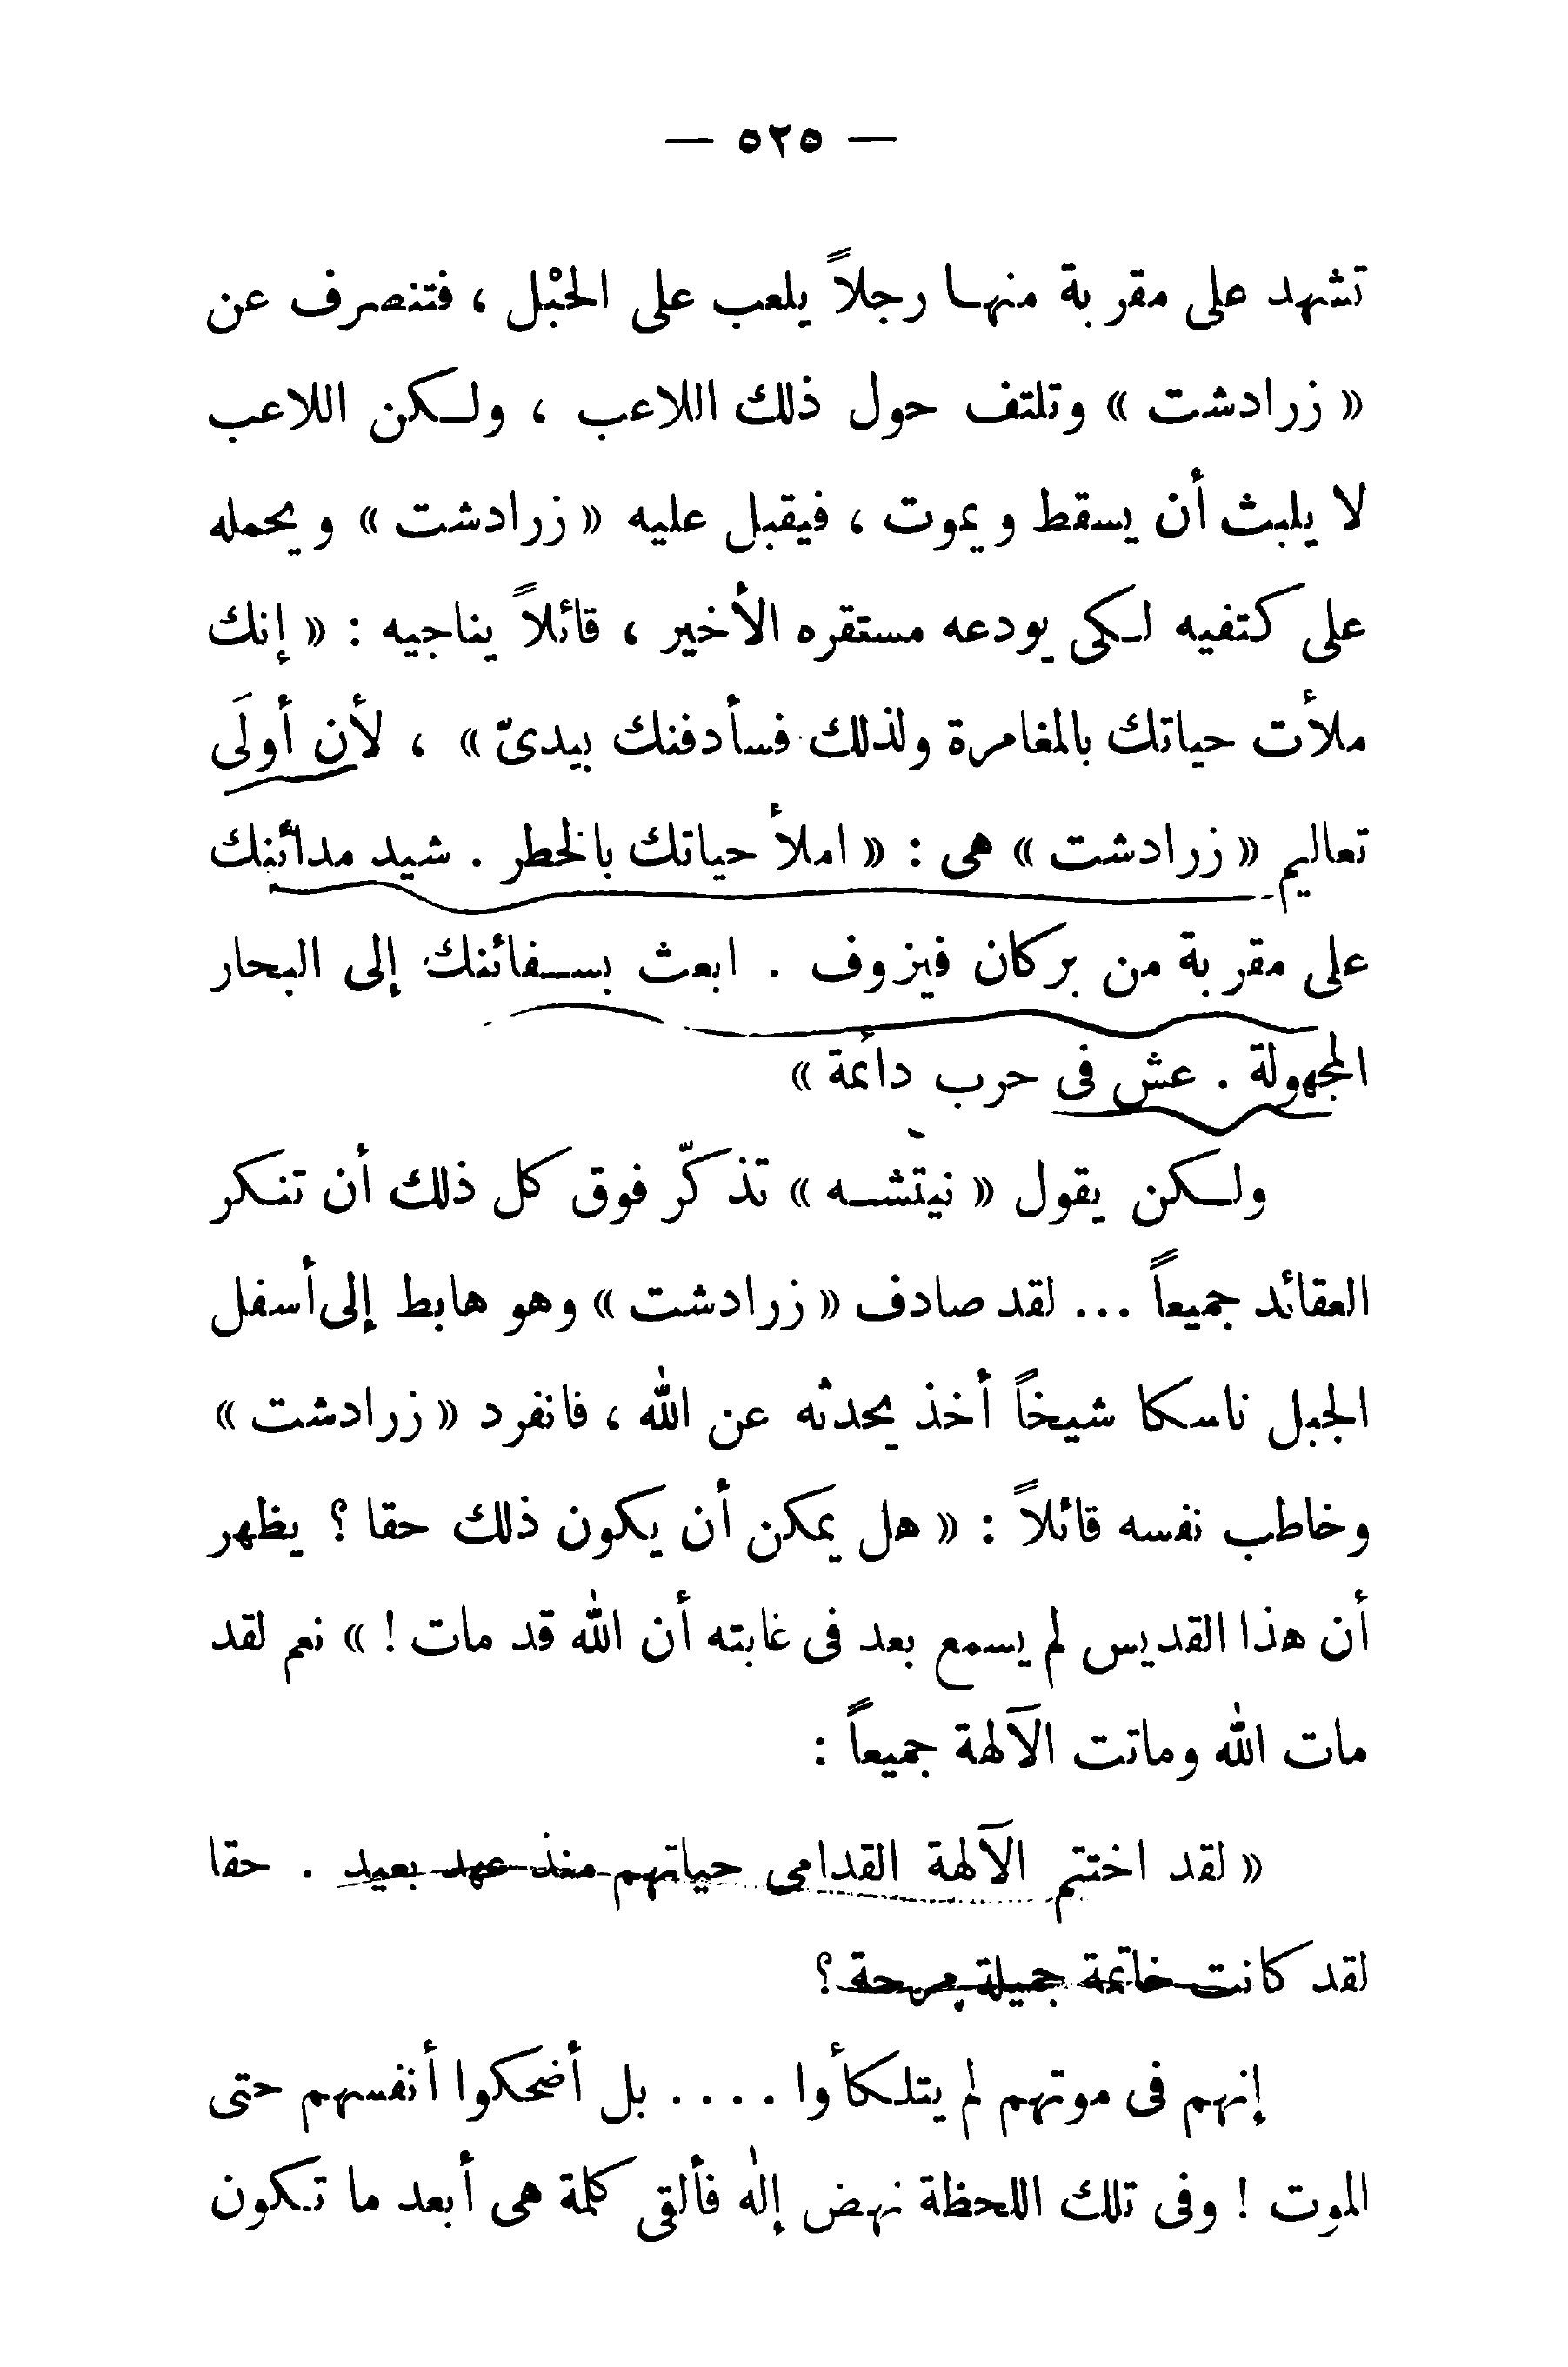 — ٥٢٥ —
تشهد على مقربة منها رجلاً يلعب على الحبْل ، فتنصرف عن
« زرادشت » وتلتف حول ذلك اللاعب ، ولكن اللاعب
لا يلبث أن يسقط ويموت ، فيقبل عليه « زرادشت » ويحمله
على كتفيه لكى يودعه مستقره الأخير ، قائلاً يناجيه : « إنك
ملأت حياتك بالمغامرة ولذلك فسأدفنك بيدىّ » ، لأن أولَى
تعاليم « زرادشت » هى : « املأ حياتك بالخطر . شيد مدائنك
على مقربة من بركان فيزوف . ابعث بسفائنك إلى البحار
المجهولة . عش فى حرب دائمة »
ولكن يقول « نيتشه » تذكّر فوق كل ذلك أن تنكر
العقائد جميعاً ... لقد صادف « زرادشت » وهو هابط إلى أسفل
الجبل ناسكا شيخاً أخذ يحدثه عن الله ، فانفرد « زرادشت »
وخاطب نفسه قائلاً : « هل يمكن أن يكون ذلك حقا ؟ يظهر
أن هذا القديس لم يسمع بعد فى غابته أن الله قد مات ! » نعم لقد
مات الله وماتت الآلهة جميعاً :
« لقد اختتم الآلهة القدامى حياتهم منذ عهد بعيد . حقا
لقد كانت خاتمة جميلة مرحة ؟
إنهم فى موتهم لم يتلكأوا .... بل أضحكوا أنفسهم حتى
الموت ! وفى تلك اللحظة نهض إلٰه فألقى كلمة هى أبعد ما تكون